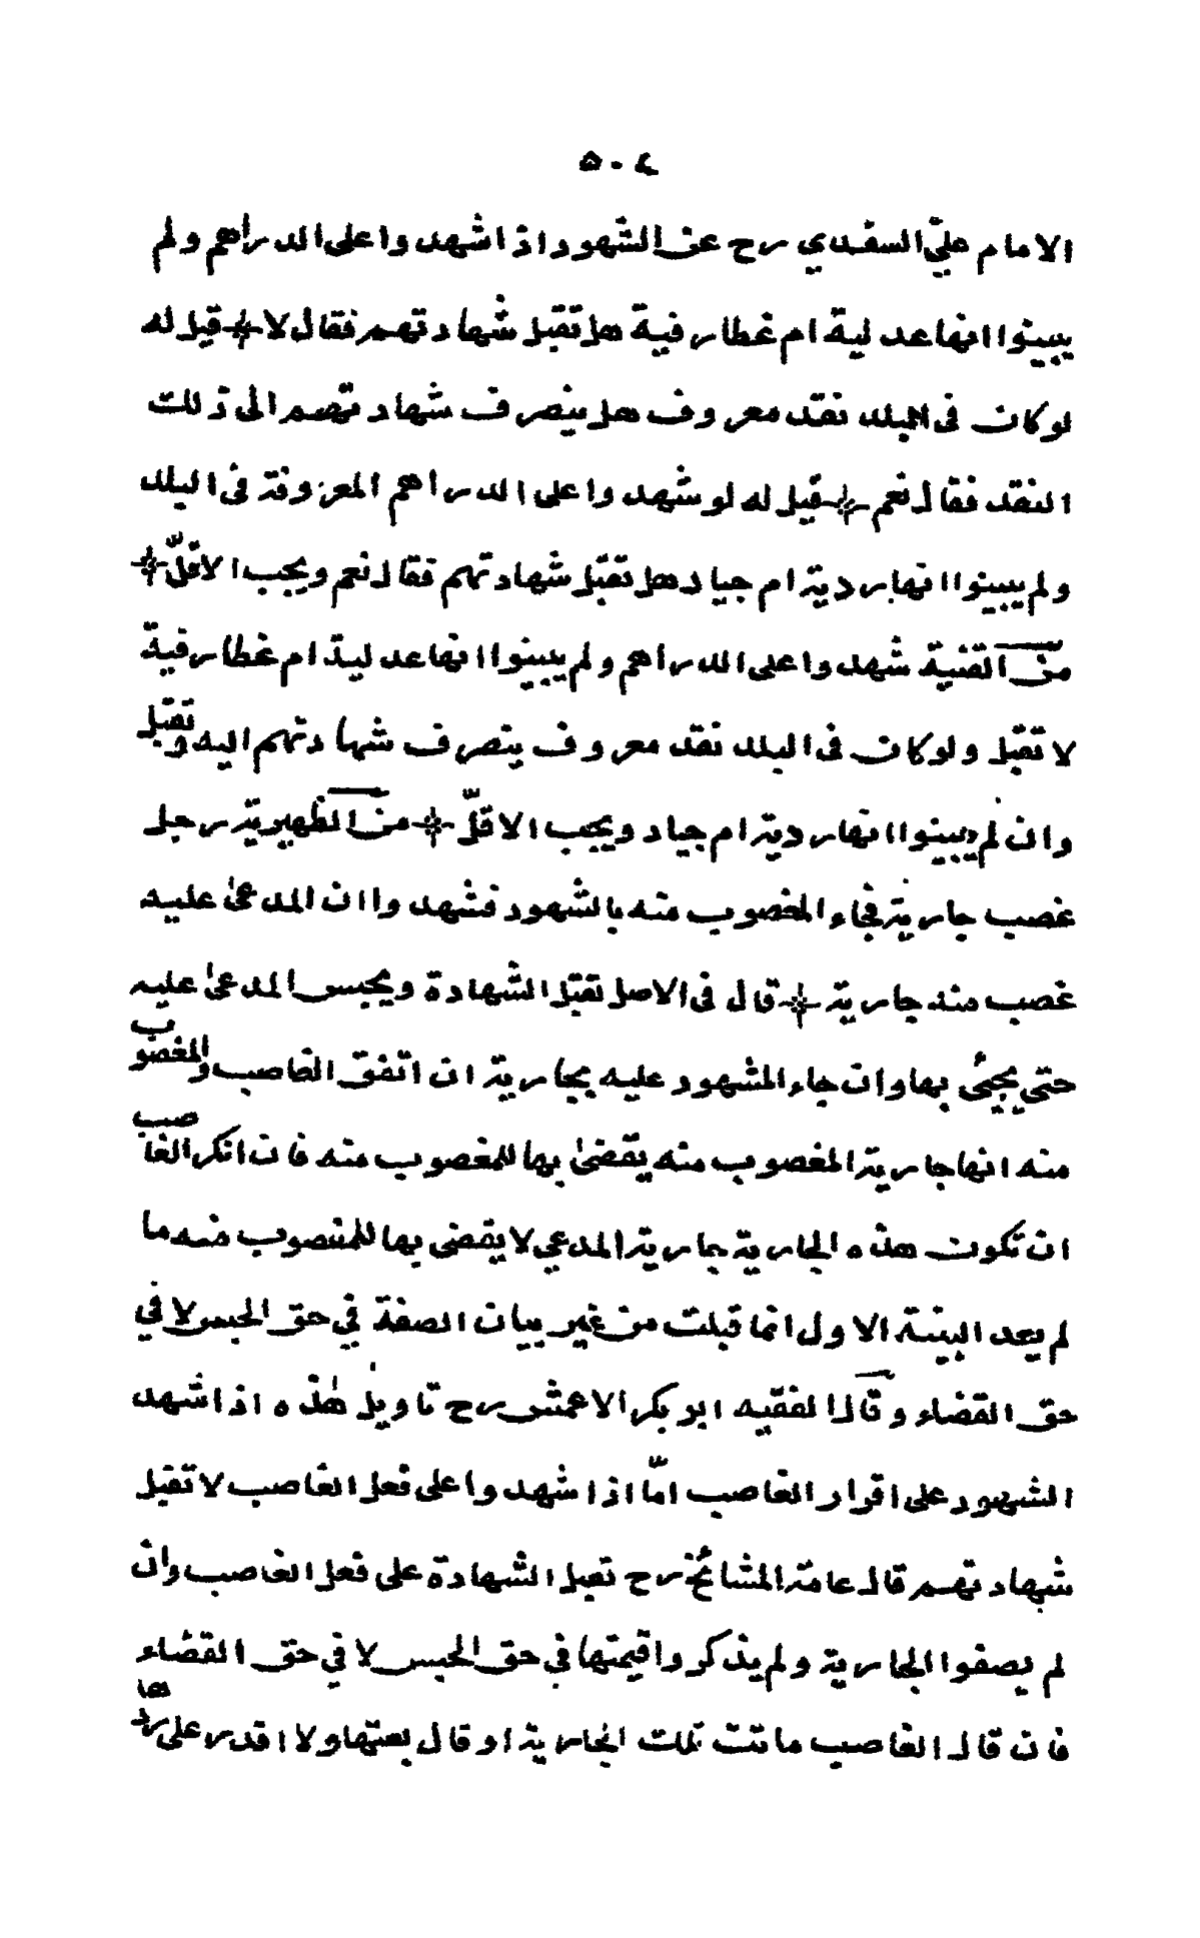 ٥٠٤
الامام عليّ السغدي رح عن الشهود اذا شهدوا على الدراهم ولم
يبينوا انها عدلية ام غطارفية هل تقبل شهادتهم فقال لا ✣ قيل له
لو كان فى البلد نقد معروف هل ينصرف شهادتهم الى ذلك
النقد فقال نعم ✣ قيل له لو شهدوا على الدراهم المعروفة فى البلد
ولم يبينوا انها ردية ام جياد هل تقبل شهادتهم فقال نعم ويجب الاقلّ ✣
من القنية شهدوا على الدراهم ولم يبينوا انها عدلية ام غطارفية
لا تقبل ولو كان فى البلد نقد معروف يتصرف شهادتهم اليه وتقبل
وان لم يبينوا انها ردية ام جياد ويجب الاقلّ ✣ من الظهيرية رجل
غصب جارية فجاء المغصوب منه بالشهود فشهدوا ان المدعىٰ عليه
غصب منه جارية ✣ قال فى الاصل تقبل الشهادة ويحبس المدعىٰ عليه
حتى يجئى بها وان جاء المشهود عليه بجارية ان اتفق الغاصب والمغصوب
منه انها جارية المغصوب منه يقضىٰ بها للمغصوب منه فان انكر الغاصب
ان تكون هذه الجارية جارية المدعي لا يقضى بها للمغصوب منه ما
لم يعد البينة الاولى انما قبلت من غير بيان الصفة في حق الحبس لا في
حق القضاء وقال الفقيه ابو بكر الاعمش رح تاويل هٰذه اذا شهد
الشهود على اقرار الغاصب امّا اذا شهدوا على فعل الغاصب لا تقبل
شهادتهم قال عامة المشائخ رح تقبل الشهادة على فعل الغاصب وان
لم يصفوا الجارية ولم يذكروا قيمتها في حق الحبس لا في حق القضاء
فان قال الغاصب ماتت تلك الجارية او قال بعتها ولا اقدر على ردها